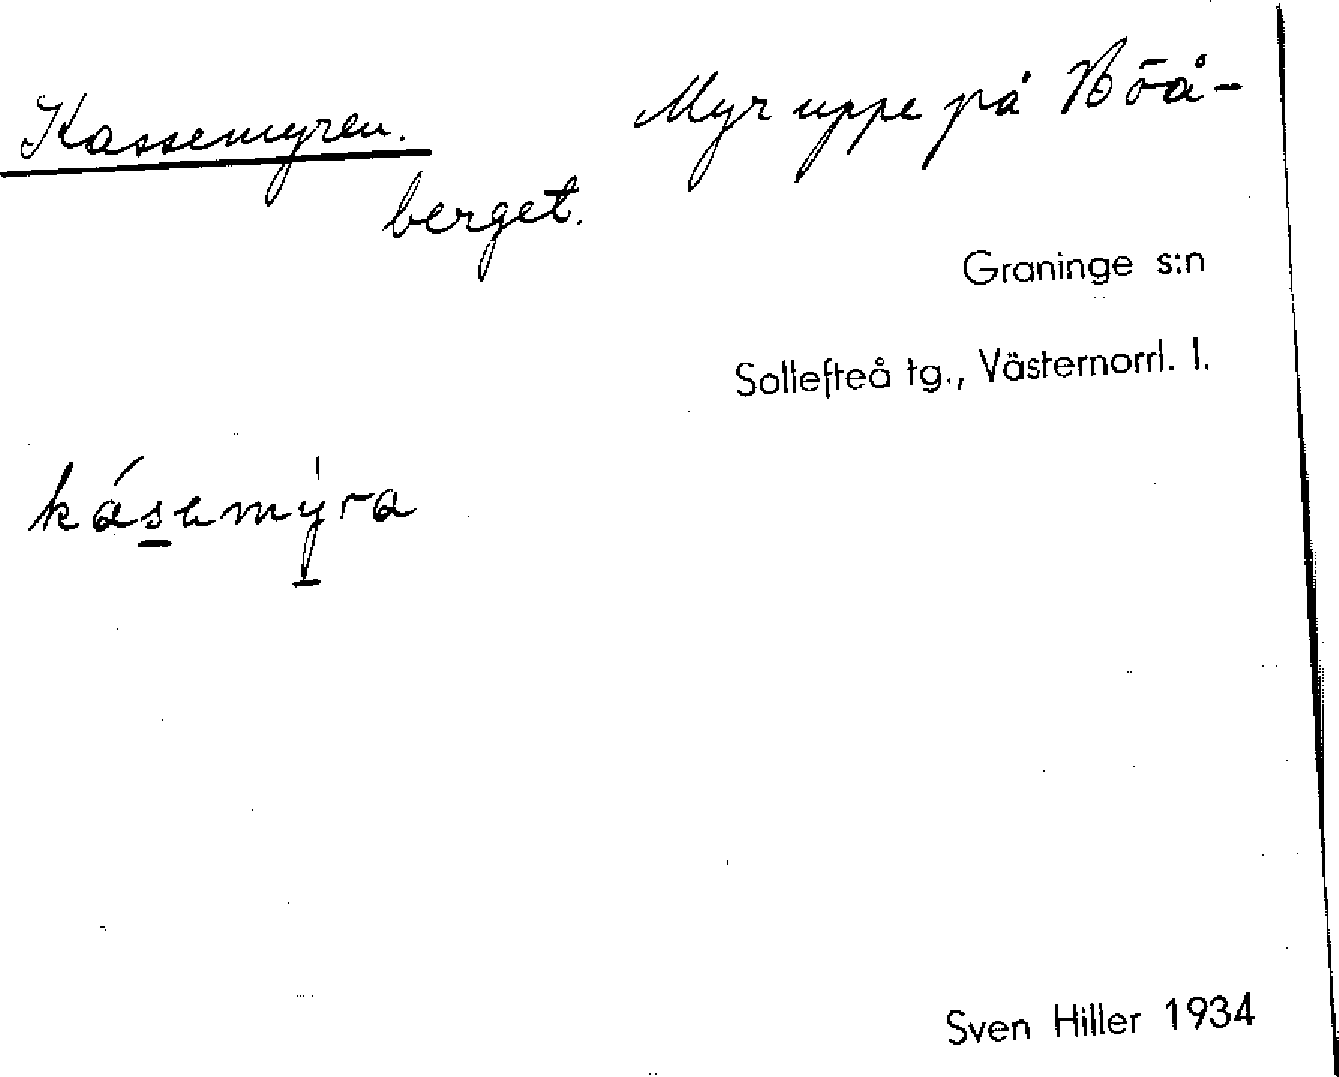 Kassemyren. Myr uppe på Böå-
berget.
Graninge s:n
Sollefteå tg., Västernorrl. l.
kásemýra
Sven Hiller 1934